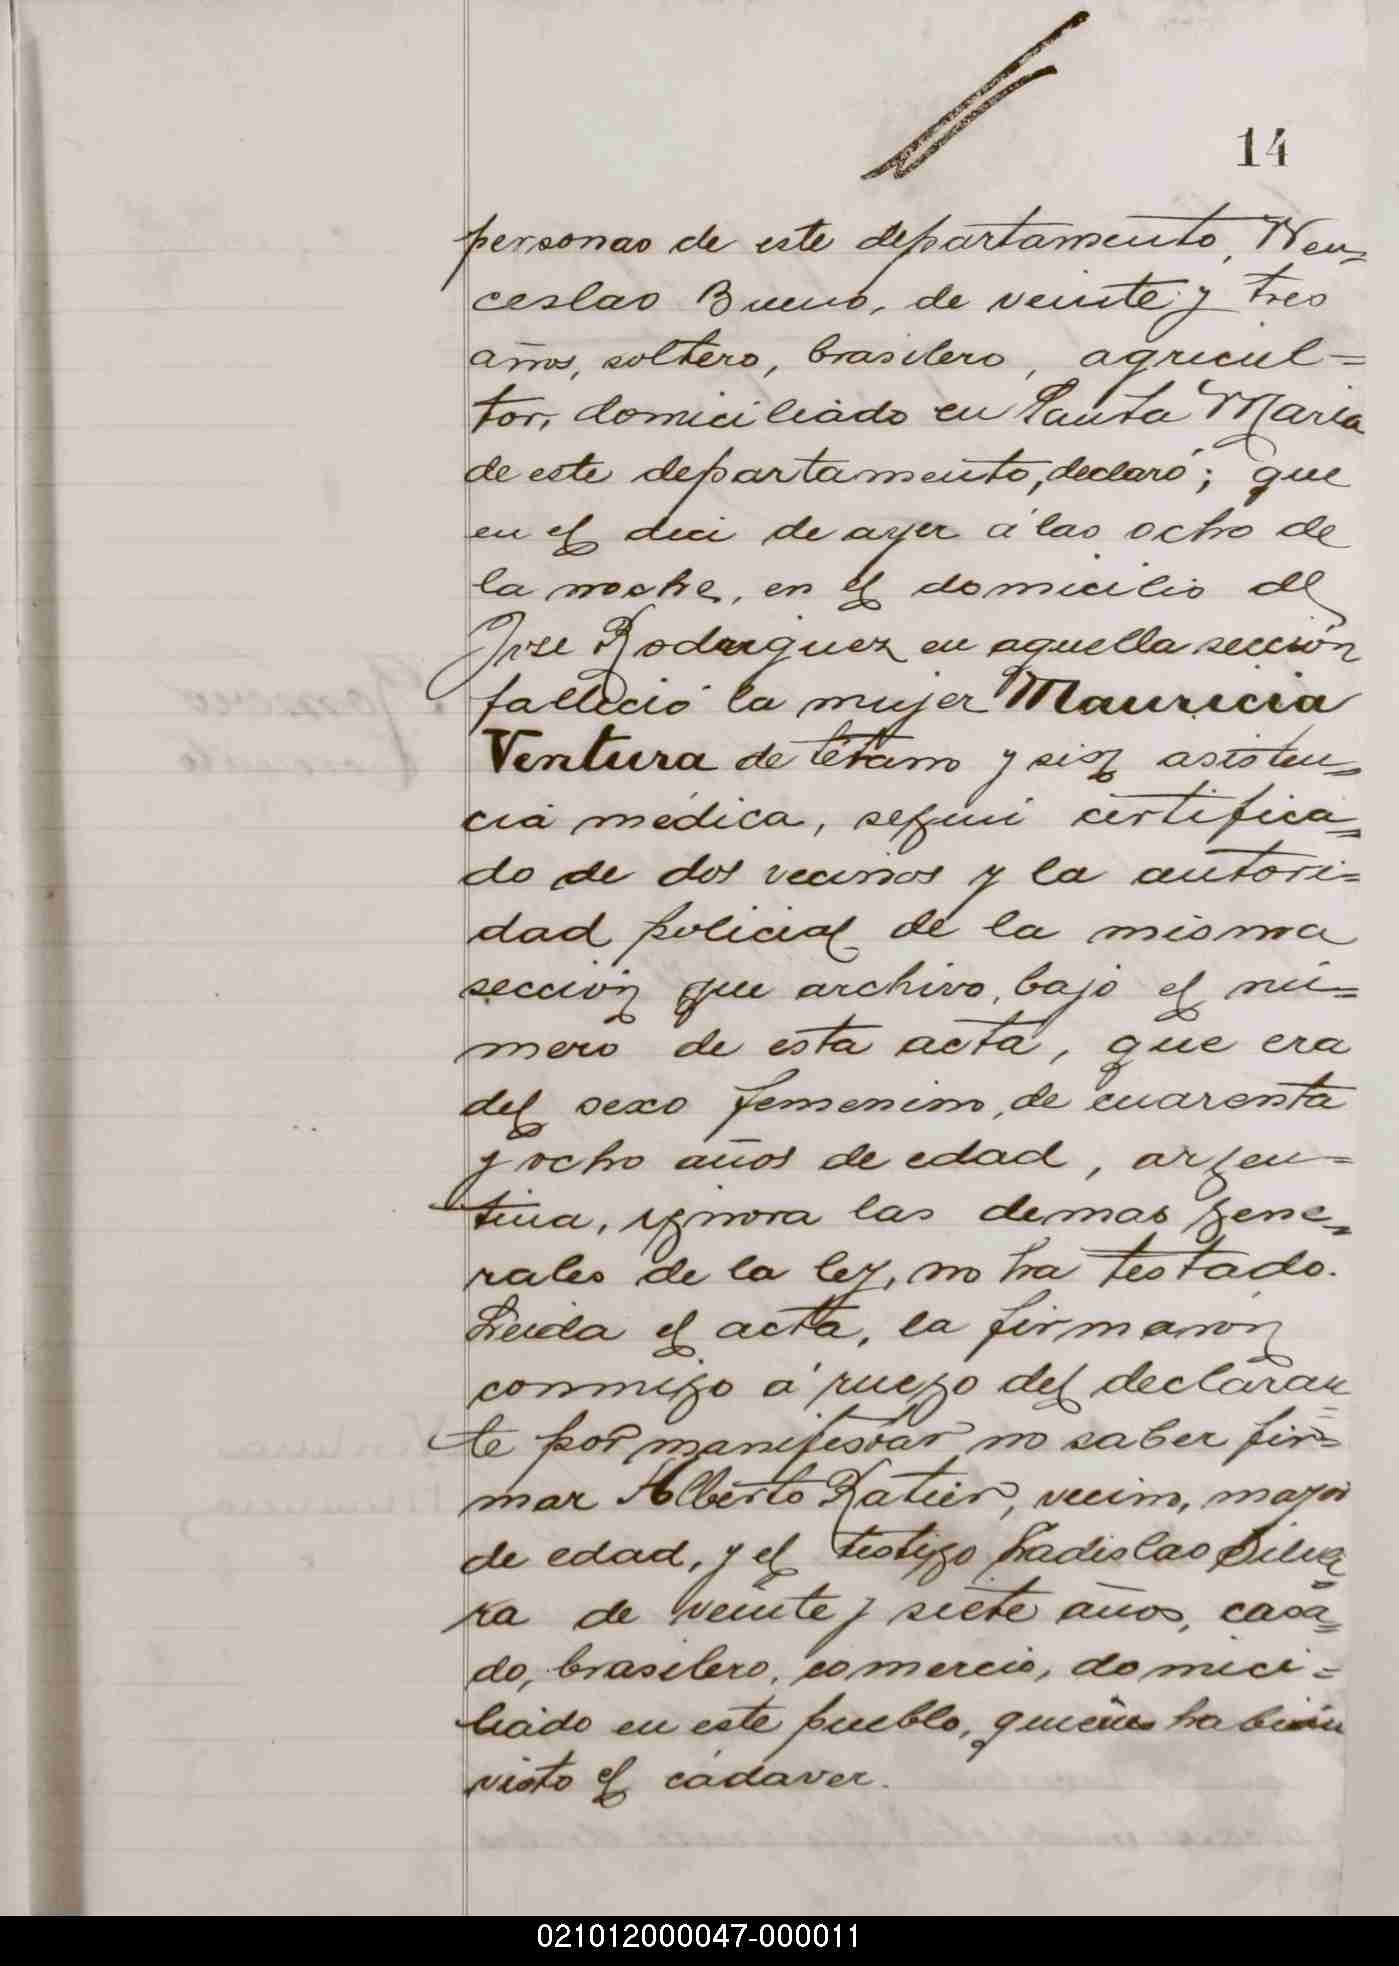 14
personas de este departamento, Wen=
ceslao Bueno, de veinte y tres
años, soltero, brasilero, agricul=
tor, domiciliado en Santa Maria
de este departamento, declaró; que
en el dia de ayer á las ocho de
la noche, en el domicilio de
José Rodriguez en aquella sección
falleció la mujer Mauricia
Ventura de tétano y sin asisten=
cia médica, segun certifica=
do de dos vecinos y la autori=
dad policial de la misma
sección que archivo, bajo el nú=
mero de esta acta, que era
del sexo femenino, de cuarenta
y ocho años de edad, argen=
tina, ignora las demas gene=
rales de la ley, no ha testado.
Leida el acta, la firmaron
conmigo á ruego del declaran=
te por manifestar no saber fir=
mar Alberto Ratier, vecino, mayor
de edad, y el testigo Ladislao Silvei
ra de veinte y siete años, casa=
do, brasilero, comercio, domici=
liado en este pueblo, quienes habian
visto el cádaver.
021012000047-000011